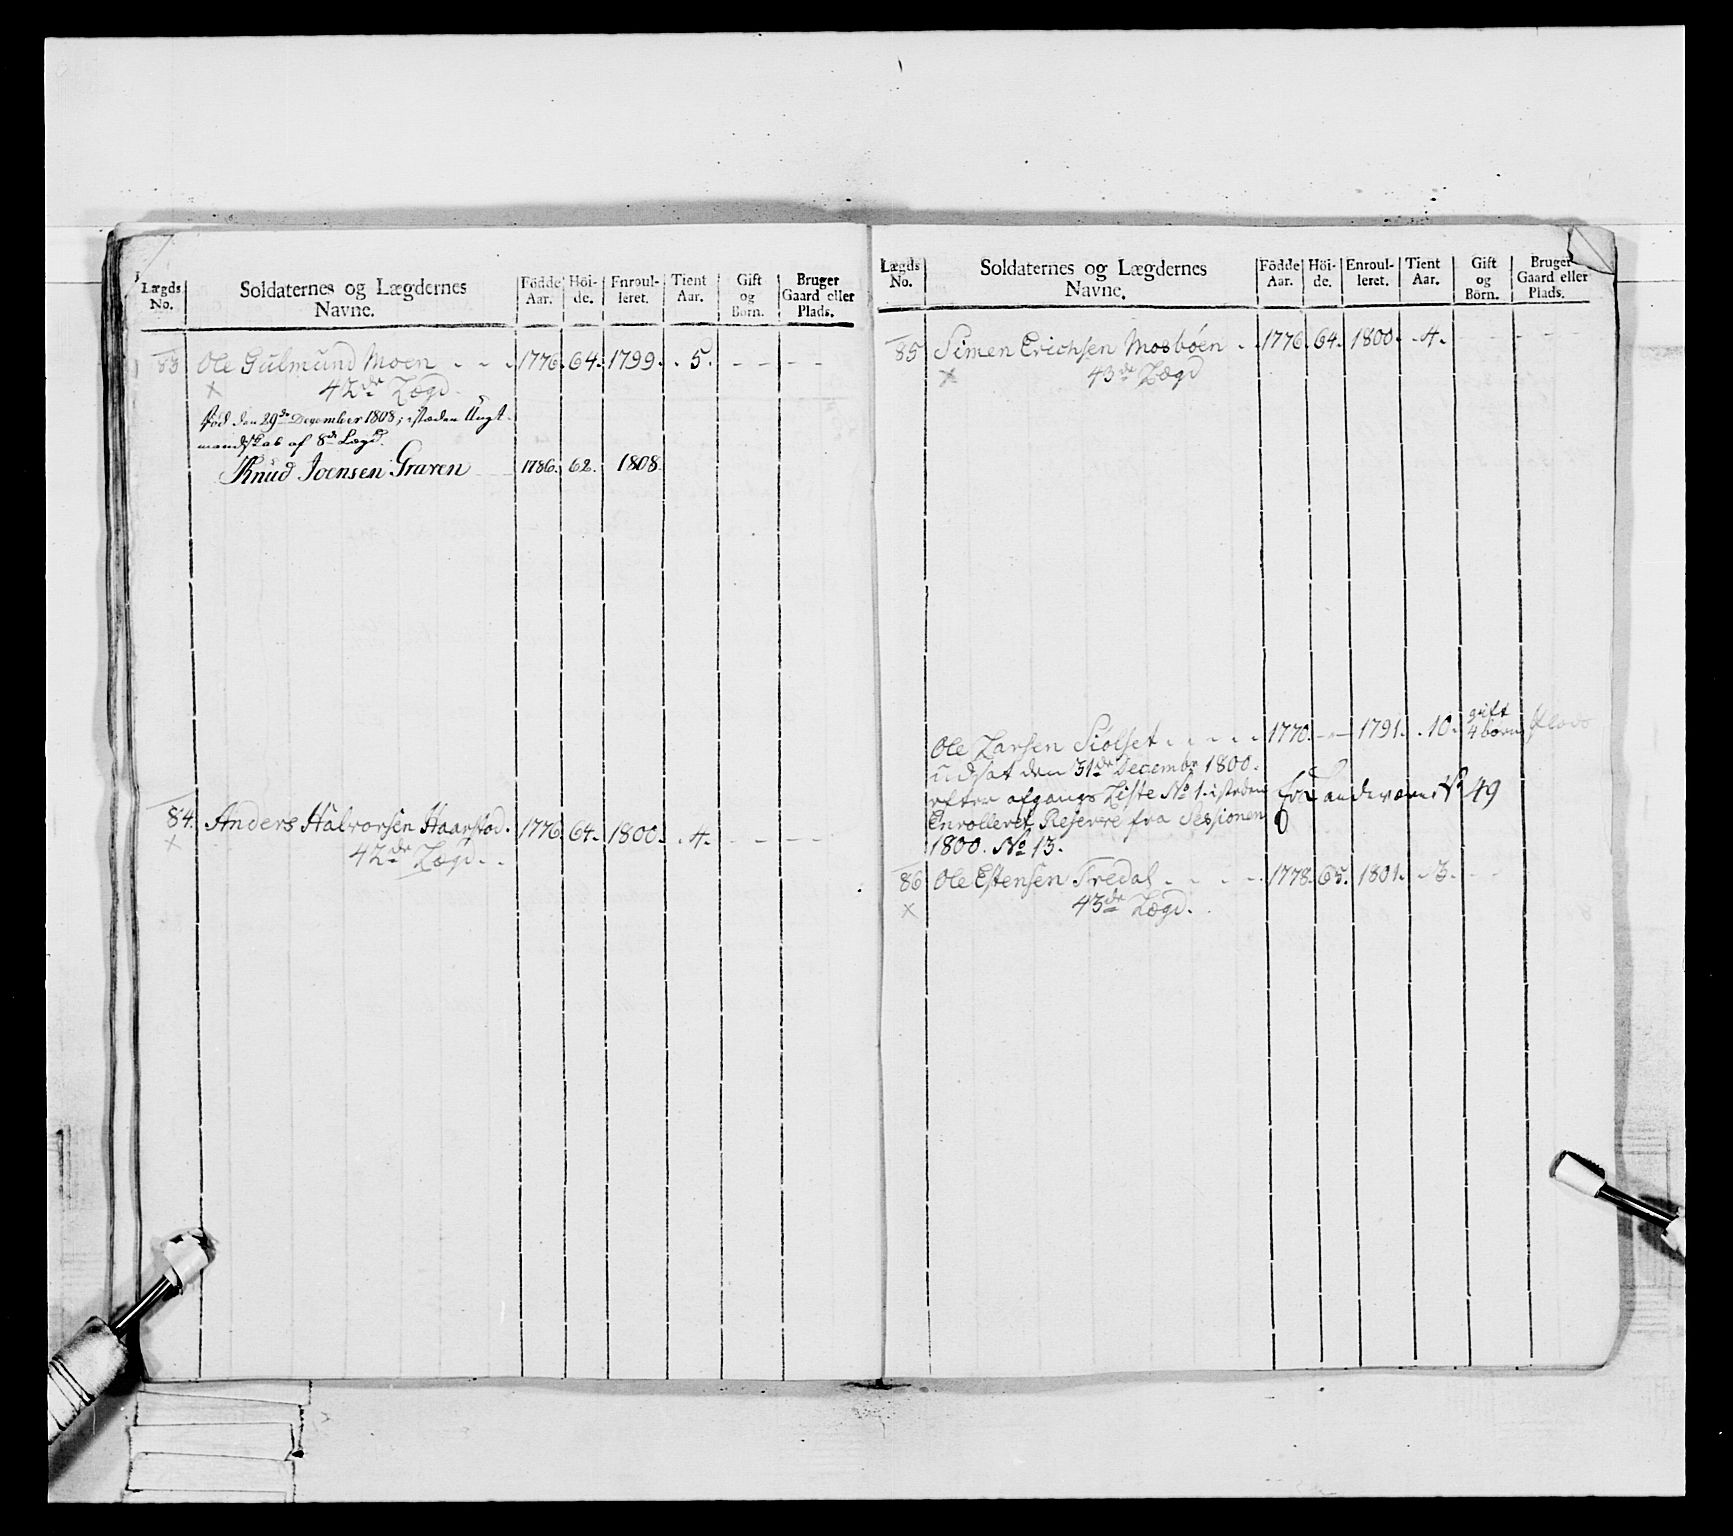 Lægds No. Soldaternes og Lægdernes Navne. Födde Aar. Höi- de. Enroul- leret. Tient Aar. Gift og Börn. Bruger Gaard eller Plads.
83 Ole Gulmund Moen - - - 1776. 64. 1799. . 5. - - - -
× 42de Lægd.
død den 29de December 1808; istæden Ungt-
mandskab af 8de Lægd.
Knud Joensen Graven 1786. 62. 1808.
84. Anders Halvorsen Haarstad. 1776 64. 1800. . 4. - - - -
× 42de Lægd. .
Lægds No. Soldaternes og Lægdernes Navne. Födde Aar. Höi- de. Enroul- leret. Tient Aar. Gift og Börn. Bruger Gaard eller Plads.
85 Simen Erichsen Mosböen . . 1776. 64. 1800. . 4. - - - -
× 43de Lægd
Ole Larsen Siolset . . . . . 1770. - - 1791. . 10. gift 4 börn
udsat den 31de Decembr 1800.
efter afgangs Liste No 1. isteden Landeværn No 49
Enrolleret Reserve fra Sessionen
1800. No 13.
86 Ole Estensen Tredal . . . . 1778. 65. 1801. . 3. - -
× 43de Lægd.